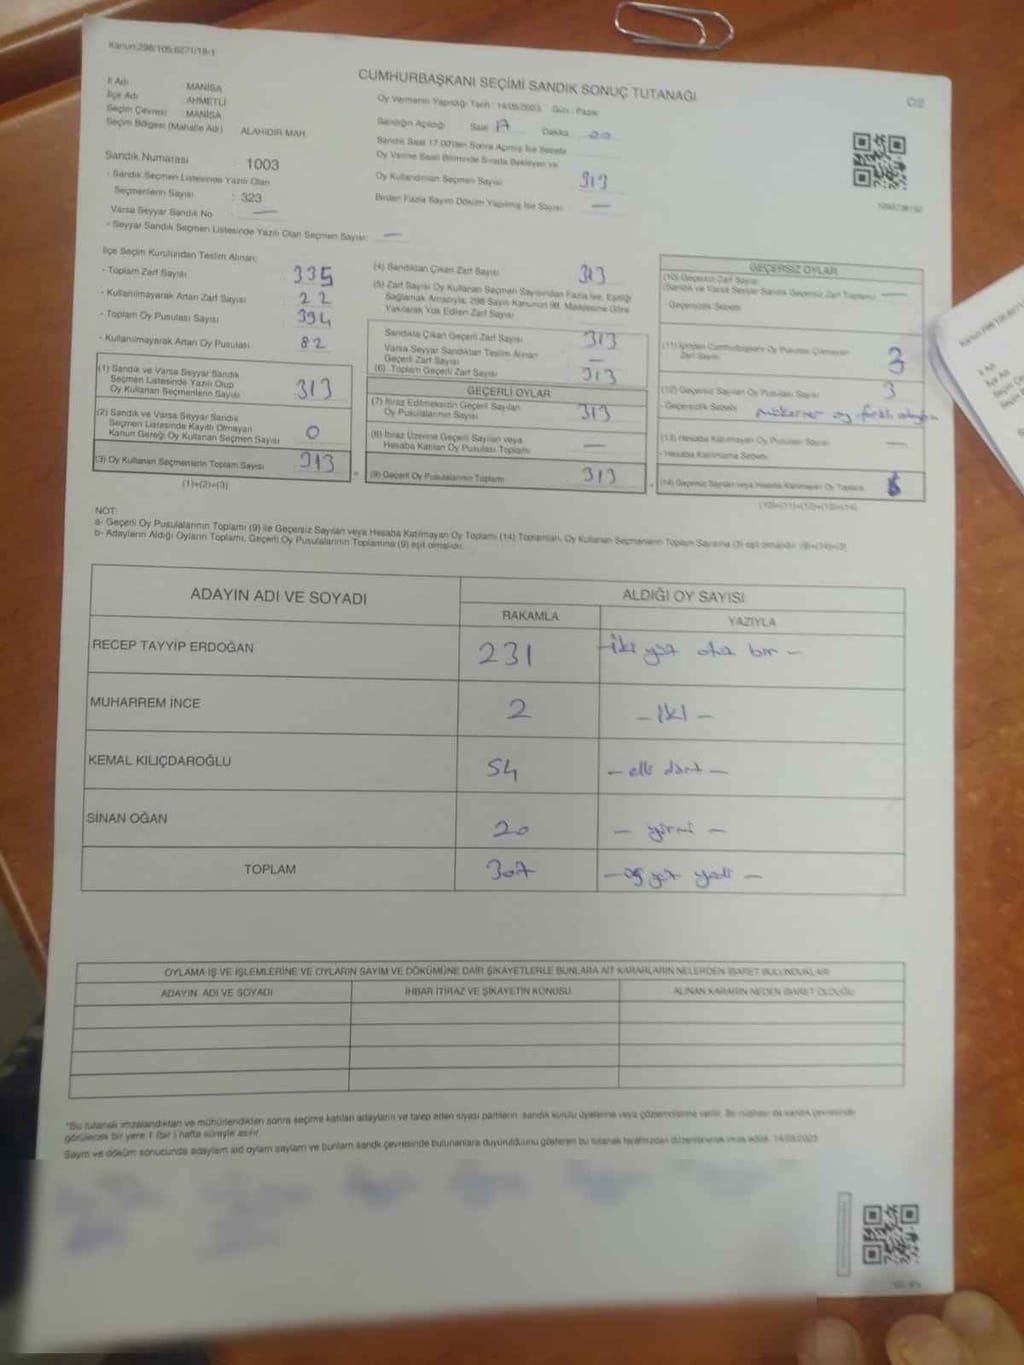 Kanun:298/105,6271/18-1
CUMHURBAŞKANI SEÇİMİ SANDIK SONUÇ TUTANAĞI
C/2
İl Adı MANİSA
İlçe Adı AHMETLİ
Seçim Çevresi : MANİSA
Seçim Bölgesi (Mahalle Adı) ALAHIDIR MAH.
Oy Vermenin Yapıldığı Tarih : 14/05/2023 Gün : Pazar
Sandığın Açıldığı Saat 17 Dakika 00
Sandık Saat 17.00'den Sonra Açılmış İse Sebebi
Oy Verme Saati Bitiminde Sırada Bekleyen ve
Oy Kullandırılan Seçmen Sayısı 313
Birden Fazla Sayım Döküm Yapılmış İse Sayısı —
Sandık Numarası 1003
- Sandık Seçmen Listesinde Yazılı Olan
Seçmenlerin Sayısı : 323
Varsa Seyyar Sandık No —
- Seyyar Sandık Seçmen Listesinde Yazılı Olan Seçmen Sayısı: —
İlçe Seçim Kurulundan Teslim Alınan;
- Toplam Zarf Sayısı 335
- Kullanılmayarak Artan Zarf Sayısı 22
- Toplam Oy Pusulası Sayısı : 394
- Kullanılmayarak Artan Oy Pusulası : 82
(1) Sandık ve Varsa Seyyar Sandık
Seçmen Listesinde Yazılı Olup
Oy Kullanan Seçmenlerin Sayısı 313
(2) Sandık ve Varsa Seyyar Sandık
Seçmen Listesinde Kayıtlı Olmayan
Kanun Gereği Oy Kullanan Seçmen Sayısı 0
(3) Oy Kullanan Seçmenlerin Toplam Sayısı 313
(1)+(2)=(3)
(4) Sandıktan Çıkan Zarf Sayısı 313
(5) Zarf Sayısı Oy Kullanan Seçmen Sayısından Fazla İse, Eşitliği
Sağlamak Amacıyla, 298 Sayılı Kanunun 98. Maddesine Göre
Yakılarak Yok Edilen Zarf Sayısı
Sandıkta Çıkan Geçerli Zarf Sayısı 313
Varsa Seyyar Sandıktan Teslim Alınan
Geçerli Zarf Sayısı —
(6) Toplam Geçerli Zarf Sayısı 313
GEÇERLİ OYLAR
(7) İtiraz Edilmeksizin Geçerli Sayılan
Oy Pusulalarının Sayısı 313
(8) İtiraz Üzerine Geçerli Sayılan veya
Hesaba Katılan Oy Pusulası Toplamı —
(9) Geçerli Oy Pusulalarının Toplamı 313
GEÇERSİZ OYLAR
(10) Geçersiz Zarf Sayısı
(Sandık ve Varsa Seyyar Sandık Geçersiz Zarf Toplamı) —
- Geçersizlik Sebebi
(11) İçinden Cumhurbaşkanı Oy Pusulası Çıkmayan
Zarf Sayısı 3
(12) Geçersiz Sayılan Oy Pusulası Sayısı 3
- Geçersizlik Sebebi mükerrer oy
(13) Hesaba Katılmayan Oy Pusulası Sayısı —
- Hesaba Katılmama Sebebi
(14) Geçersiz Sayılan veya Hesaba Katılmayan Oy Toplamı
NOT:
a- Geçerli Oy Pusulalarının Toplamı (9) ile Geçersiz Sayılan veya Hesaba Katılmayan Oy Toplamı (14) Toplamları, Oy Kullanan Seçmenlerin Toplam Sayısına (3) eşit olmalıdır. (9)+(14)=(3)
b- Adayların Aldığı Oyların Toplamı, Geçerli Oy Pusulalarının Toplamına (9) eşit olmalıdır.
ADAYIN ADI VE SOYADI ALDIĞI OY SAYISI
RAKAMLA YAZIYLA
RECEP TAYYİP ERDOĞAN 231 iki yüz otuz bir —
MUHARREM İNCE 2 — iki —
KEMAL KILIÇDAROĞLU 54 — elli dört —
SİNAN OĞAN 20 — yirmi —
TOPLAM 307 — üç yüz yedi —
OYLAMA İŞ VE İŞLEMLERİNE VE OYLARIN SAYIM VE DÖKÜMÜNE DAİR ŞİKAYETLERLE BUNLARA AİT KARARLARIN NELERDEN İBARET BULUNDUKLARI
ADAYIN ADI VE SOYADI İHBAR İTİRAZ VE ŞİKAYETİN KONUSU ALINAN KARARIN NEDEN İBARET OLDUĞU
*Bu tutanak imzalandıktan ve mühürlendikten sonra seçime katılan adayların ve talep eden siyasi partilerin sandık kurulu üyelerine veya gözlemcilerine verilir. Bir nüshası da sandık çevresinde
görülecek bir yere 1 (bir ) hafta süreyle asılır.